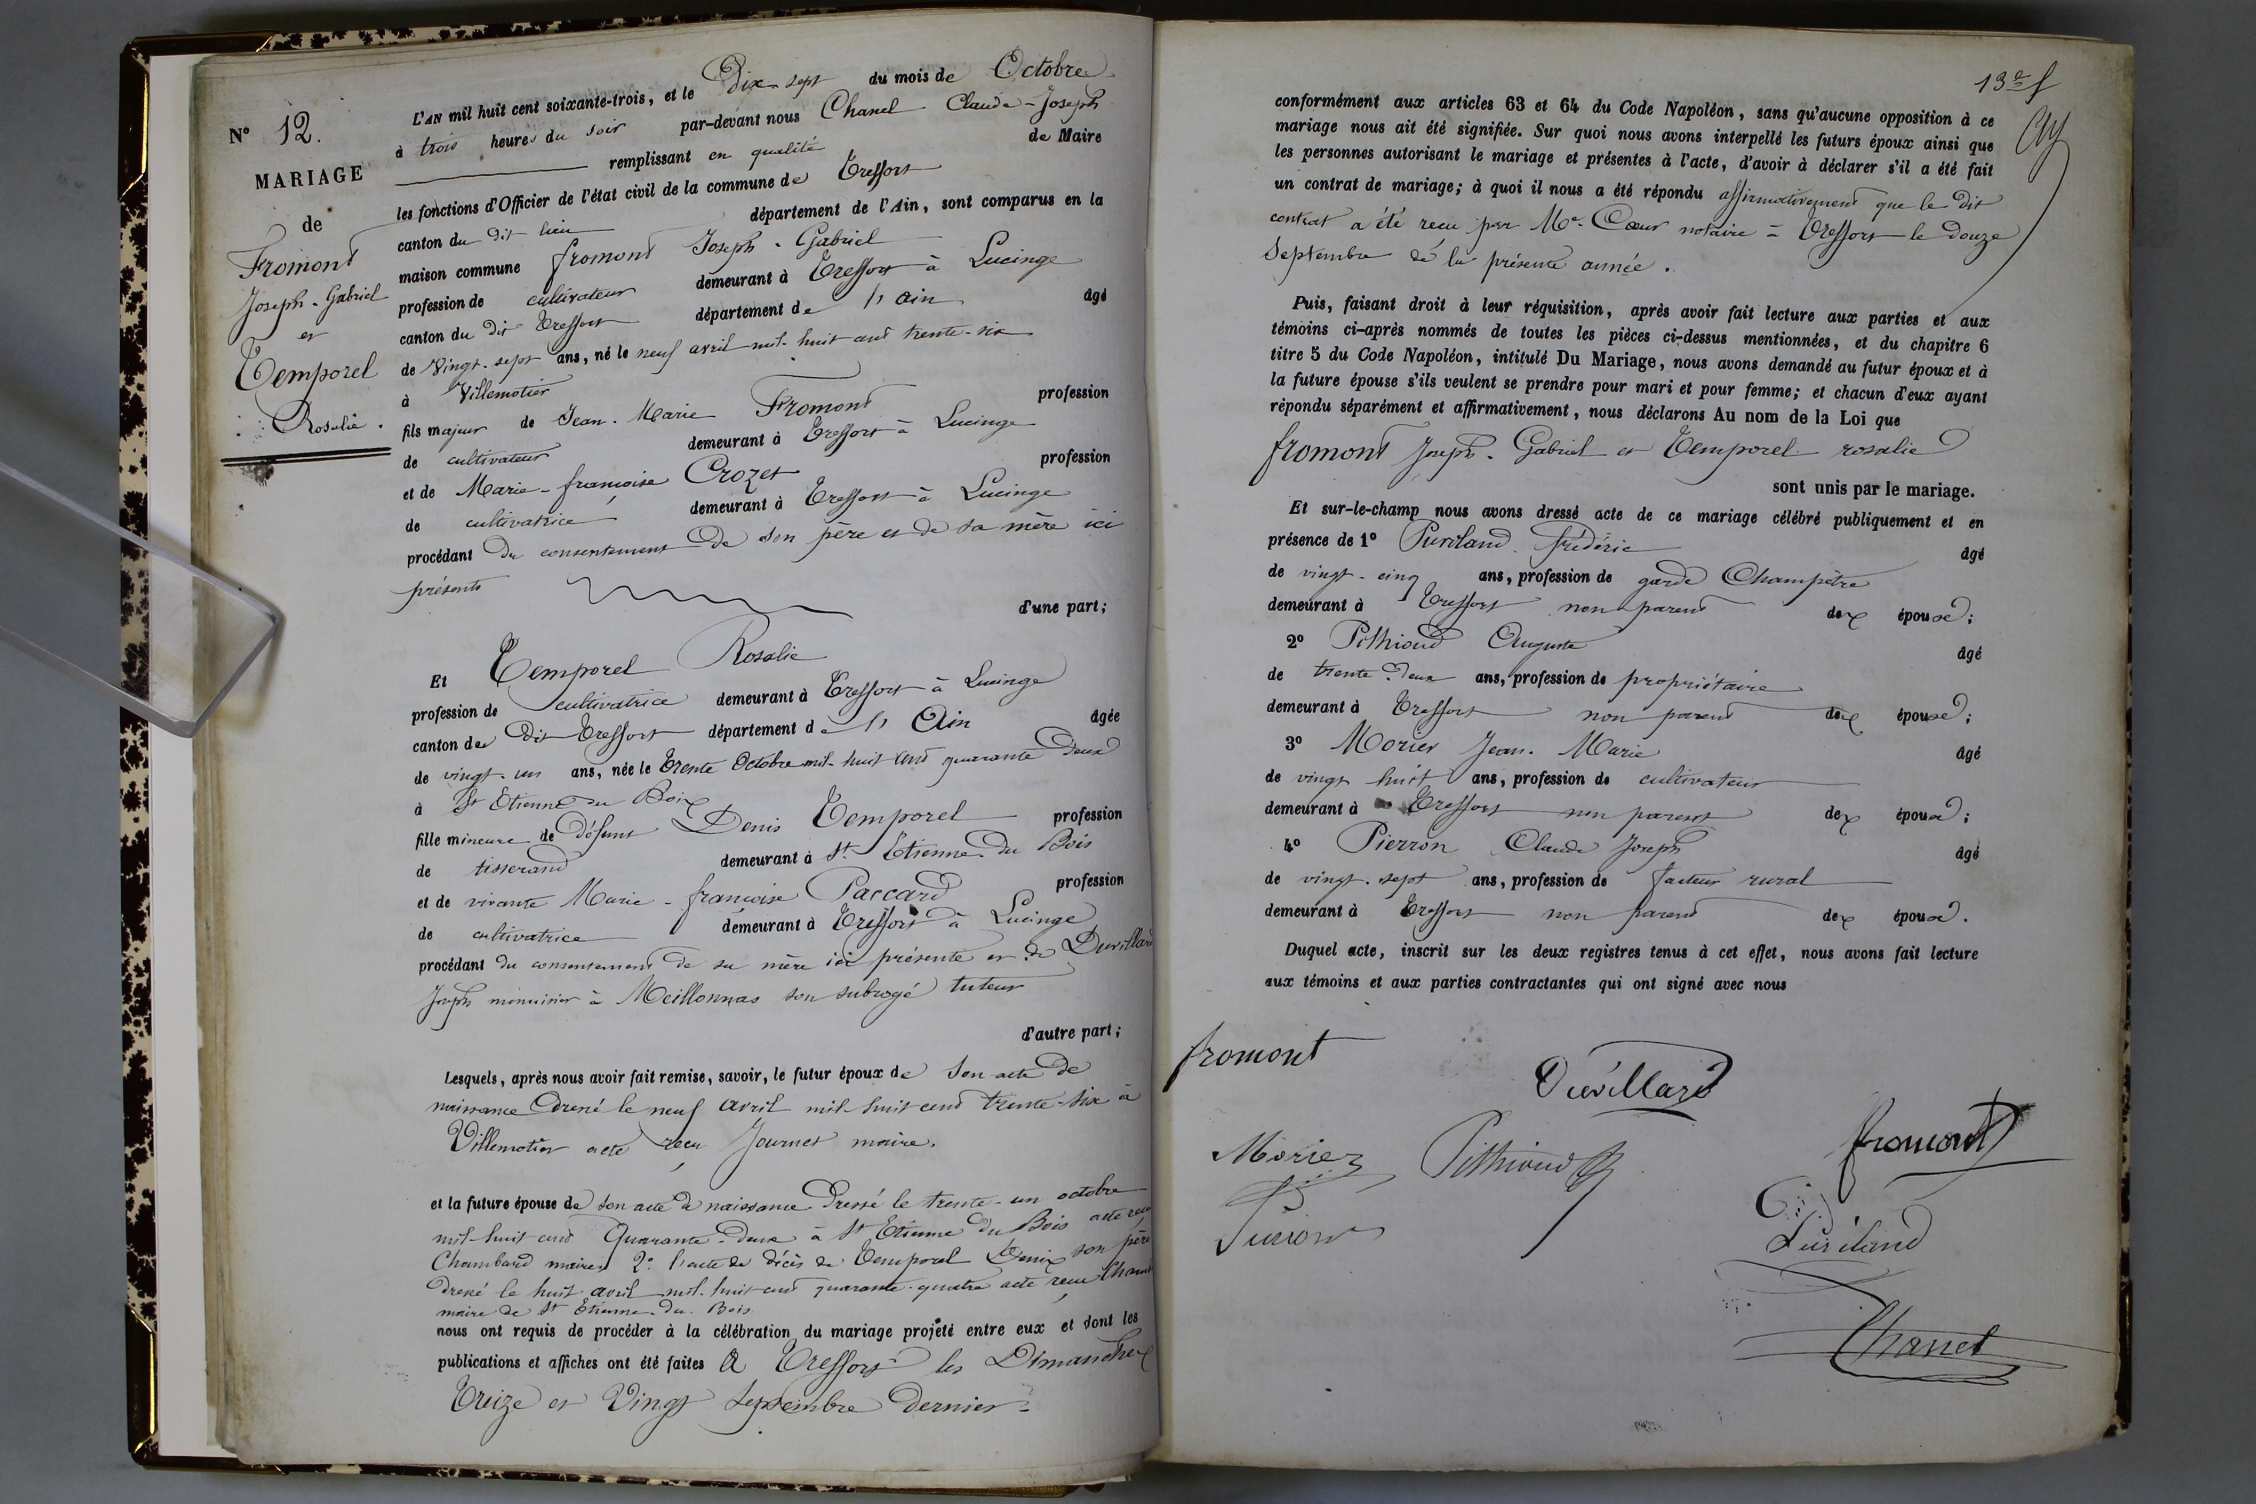 N° 12.
MARIAGE
de
Fromont
Joseph-Gabriel
et
Temporel
Rosalie.
L'AN mil huit cent soixante-trois, et le Dix sept du mois de Octobre
à trois heures du soir par-devant nous Chanel Claude-Joseph
remplissant en qualité de Maire
les fonctions d'Officier de l'état civil de la commune de Treffort
canton du dit lieu département de l'Ain, sont comparus en la
maison commune fromont Joseph-Gabriel
profession de cultivateur demeurant à Treffort à Lucinge
canton du dit Treffort département de l'ain âgé
de Vingt-sept ans, né le neuf avril mil-huit cent trente-six
à Villemotier
fils majeur de Jean-Marie Fromont profession
de cultivateur demeurant à Treffort à Lucinge
et de Marie-françoise Crozet profession
de cultivatrice demeurant à Treffort à Lucinge
procédant du consentement de son père et de sa mère ici
présents
d'une part;
Et Temporel Rosalie
profession de cultivatrice demeurant à Treffort à Lucinge
canton du dit Treffort département de l'Ain âgée
de vingt-un ans, née le trente Octobre mil-huit cent quarante Deux
à St Etienne du Bois
fille mineure de défunt Denis Temporel profession
de tisserand demeurant à St. Etienne du Bois
et de vivante Marie-françoise Paccard profession
de cultivatrice demeurant à Treffort à Lucinge
procédant du consentement de sa mère ici présente et de Duvillard
Joseph menuisier à Meillonnas son subrogé tuteur
d'autre part;
Lesquels, après nous avoir fait remise, savoir, le futur époux de son acte de
naissance dressé le neuf avril mil-huit cent trente-six à
Villemotier acte reçu Journet maire.
et la future épouse de son acte de naissance dressé le trente-un octobre
mil-huit cent Quarante-deux à St Etienne du Bois acte reçu
Chambard maire 2° l'acte de décès de Temporel Denix son père
dressé le huit avril mil-huit cent quarante-quatre acte reçu
maire de St Etienne-du-Bois
nous ont requis de procéder à la célébration du mariage projeté entre eux et dont les
publications et affiches ont été faites A Treffort les Dimanches
Treize et Vingt Septembre dernier-
13e f
conformément aux articles 63 et 64 du Code Napoléon, sans qu'aucune opposition à ce
mariage nous ait été signifiée. Sur quoi nous avons interpellé les futurs époux ainsi que
les personnes autorisant le mariage et présentes à l'acte, d'avoir à déclarer s'il a été fait
un contrat de mariage; à quoi il nous a été répondu affirmativement que le dit
contrat a été reçu par Me. Cœur notaire à Treffort le douze
Septembre de la présente année.
Puis, faisant droit à leur réquisition, après avoir fait lecture aux parties et aux
témoins ci-après nommés de toutes les pièces ci-dessus mentionnées, et du chapitre 6
titre 5 du Code Napoléon, intitulé Du Mariage, nous avons demandé au futur époux et à
la future épouse s'ils veulent se prendre pour mari et pour femme; et chacun d'eux ayant
répondu séparément et affirmativement, nous déclarons Au nom de la Loi que
fromont Joseph-Gabriel et Temporel rosalie
sont unis par le mariage.
Et sur-le-champ nous avons dressé acte de ce mariage célébré publiquement et en
présence de 1° Puvilland frédéric âgé
de vingt-cinq ans, profession de garde Champêtre
demeurant à Treffort non parent des époux;
2° Pithioud Auguste âgé
de trente-deux ans, profession de propriétaire
demeurant à Treffort non parent des époux;
3° Morier Jean-Marie âgé
de vingt huit ans, profession de cultivateur
demeurant à Treffort non parent des époux;
4° Pierron Claude Joseph âgé
de vingt-sept ans, profession de facteur rural
demeurant à Treffort non parent des époux.
Duquel acte, inscrit sur les deux registres tenus à cet effet, nous avons fait lecture
aux témoins et aux parties contractantes qui ont signé avec nous
fromont
Duvillard
fromont
Morier
Pithioud
Puvilland
Pierron
Chanel